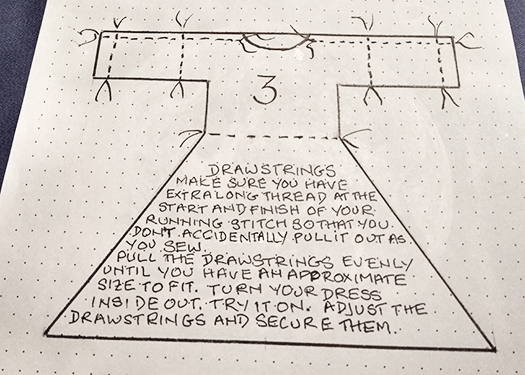 3
DRAWSTRINGS
MAKE SURE YOU HAVE
EXTRA LONG THREAD AT THE
START AND FINISH OF YOUR
RUNNING STITCH SO THAT YOU
DON'T ACCIDENTALLY PULL IT OUT AS
YOU SEW.
PULL THE DRAWSTRINGS EVENLY
UNTIL YOU HAVE AN APPROXIMATE
SIZE TO FIT. TURN YOUR DRESS
INSIDE OUT. TRY IT ON. ADJUST THE
DRAWSTRINGS AND SECURE THEM.